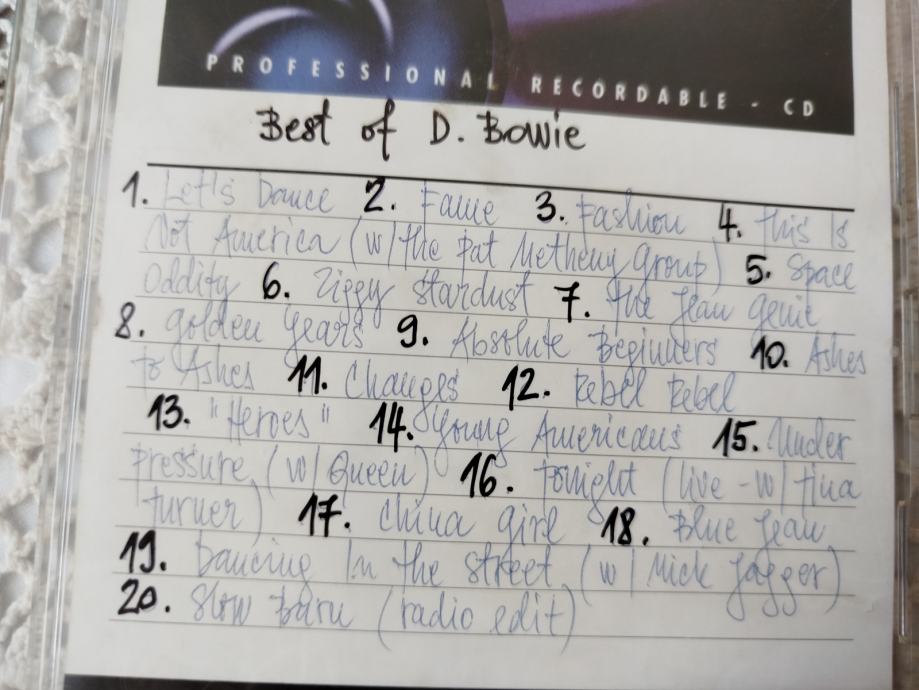 PROFESSIONAL RECORDABLE - CD
Best of D. Bowie
1. Let's Dance 2. Fame 3. Fashion 4. This Is
Not America (w/ the Pat Metheny group) 5. Space
Oddity 6. Ziggy Stardust 7. The Jean Genie
8. Golden Years 9. Absolute Beginners 10. Ashes
To Ashes 11. Changes 12. Rebel Rebel
13. "Heroes" 14. Young Americans 15. Under
Pressure (w/ Queen) 16. Tonight (live - w/ Tina
Turner) 17. China Girl 18. Blue Jean
19. Dancing In The Street (w/ Mick Jagger)
20. Slow Burn (radio edit)